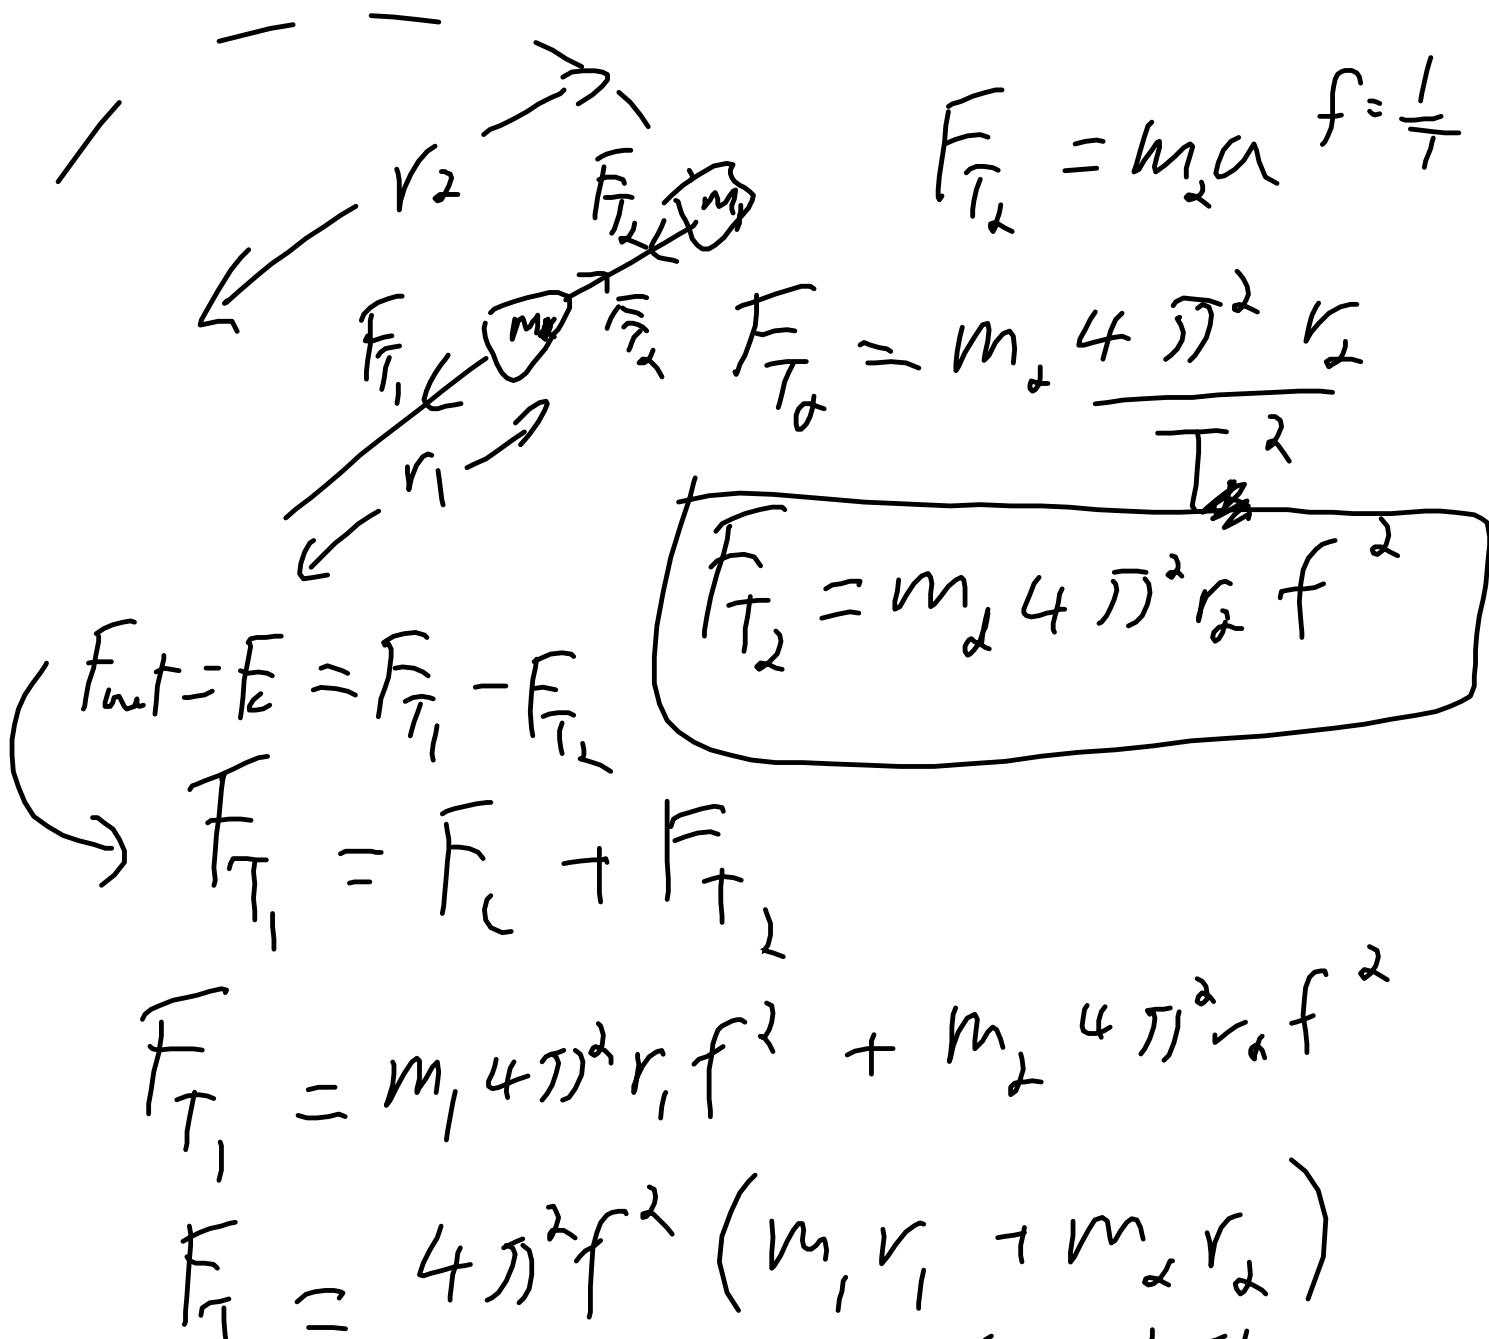 r₂
F_T₂
m₁
F_T₁
F_T₂
r₁
F_T₂ = m₂a
f = 1/T
F_T₂ = m₂ 4π² r₂ / T²
F_T₂ = m₂ 4π² r₂ f²
F_net = F_c = F_T₁ - F_T₂
F_T₁ = F_c + F_T₂
F_T₁ = m₁ 4π² r₁ f² + m₂ 4π² r₂ f²
F_T = 4π² f² (m₁ r₁ + m₂ r₂)